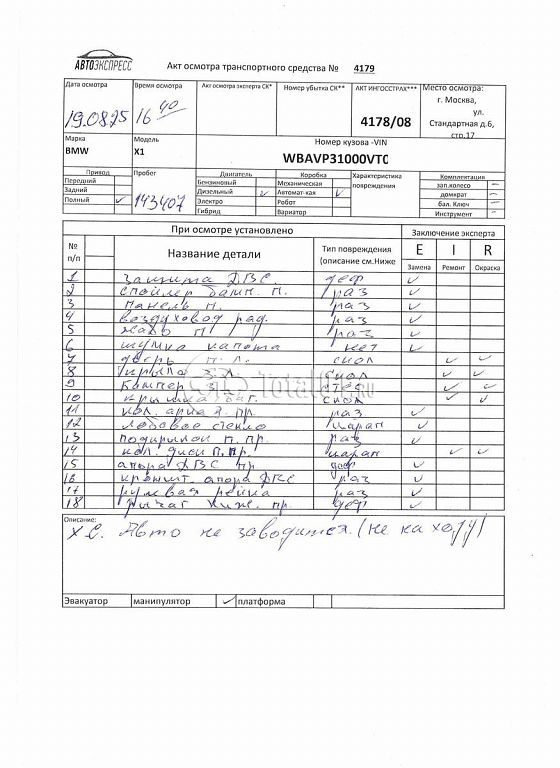 АВТОЭКСПРЕСС
Акт осмотра транспортного средства № 4179
Дата осмотра Время осмотра Акт осмотра эксперта СК* Номер убытка СК** АКТ ИНГОССТРАХ*** Место осмотра:
19.08.25 16 40 4178/08 г. Москва,
ул.
Стандартная д.6,
стр.17
Марка Модель Номер кузова -VIN
BMW X1 WBAVP31000VT
Привод Пробег Двигатель Коробка Характеристика повреждения Комплектация
Передний Бензиновый Механическая зап.колесо –
Задний Дизельный ✓ Автомат-кая ✓ домкрат –
Полный ✓ 143407 Электро Робот бал. Ключ –
Гибрид Вариатор Инструмент –
При осмотре установлено Заключение эксперта
№ п/п Название детали Тип повреждения (описание см.Ниже E I R
Замена Ремонт Окраска
1 Защита ДВС. деф ✓
2 спойлер бамп. п. раз ✓
3 панель п. раз ✓
4 воздуховод рад. раз ✓
5 жабо п раз ✓
6 шумка капота нет ✓
7 дверь п. л. скол ✓ ✓
8 крыло з л. скол ✓ ✓
9 бампер з ✓ ✓
10 крышка баг. скол ✓ ✓
11 кол. арка п. пр. раз ✓
12 лобовое стекло царап ✓
13 подкрылок п. пр. раз ✓
14 кол. диск п. пр. царап ✓ ✓
15 апора ДВС пр деф ✓
16 кроншт апора ДВС раз ✓
17 рулевая рейка раз ✓
18 рычаг ниж. пр. деф ✓
Описание:
Х С. Авто не заводится. (не на ходу)
Эвакуатор манипулятор ✓ платформа
TotalCar.ru